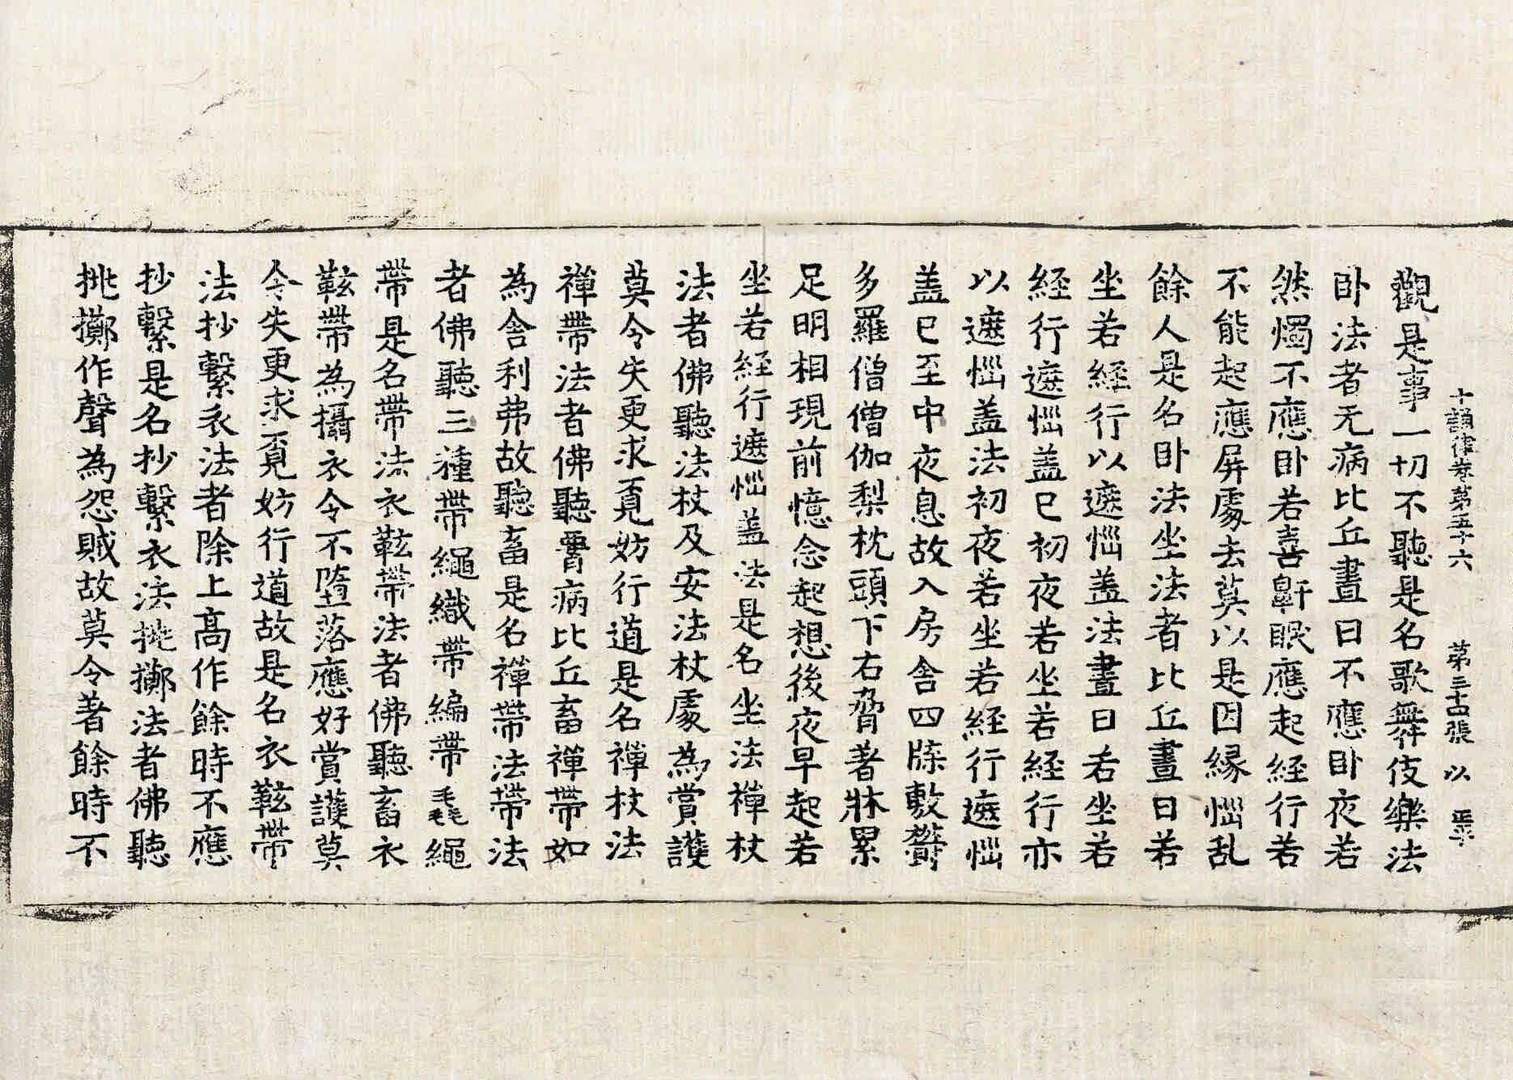 十誦律卷第五十六 第三十四張 以
觀是事一切不聽是名歌舞伎樂法
卧法者无病比丘晝日不應卧夜若
然燭不應卧若喜鼾眠應起經行若
不能起應屏處去莫以是因緣惱乱
餘人是名卧法坐法者比丘晝日若
坐若經行以遮惱盖法晝日若坐若
經行遮惱盖已初夜若坐若經行亦
以遮惱盖法初夜若坐若經行遮惱
盖已至中夜息故入房舍四牒敷欝
多羅僧僧伽梨枕頭下右脅著牀累
足明相現前憶念起想後夜早起若
坐若經行遮惱盖法是名坐法禪杖
法者佛聽法杖及安法杖處為賞護
莫令失更求覔妨行道是名禪杖法
禪帶法者佛聽腎病比丘畜禪帶如
為舍利弗故聽畜是名禪帶法帶法
者佛聽三種帶繩織帶編帶毳繩
帶是名帶法衣䩙帶法者佛聽畜衣
䩙帶為攝衣令不墮落應好賞護莫
令失更求覔妨行道故是名衣䩙帶
法抄繫衣法者除上高作餘時不應
抄繫是名抄繫衣法挑擲法者佛聽
挑擲作聲為怨賊故莫令著餘時不